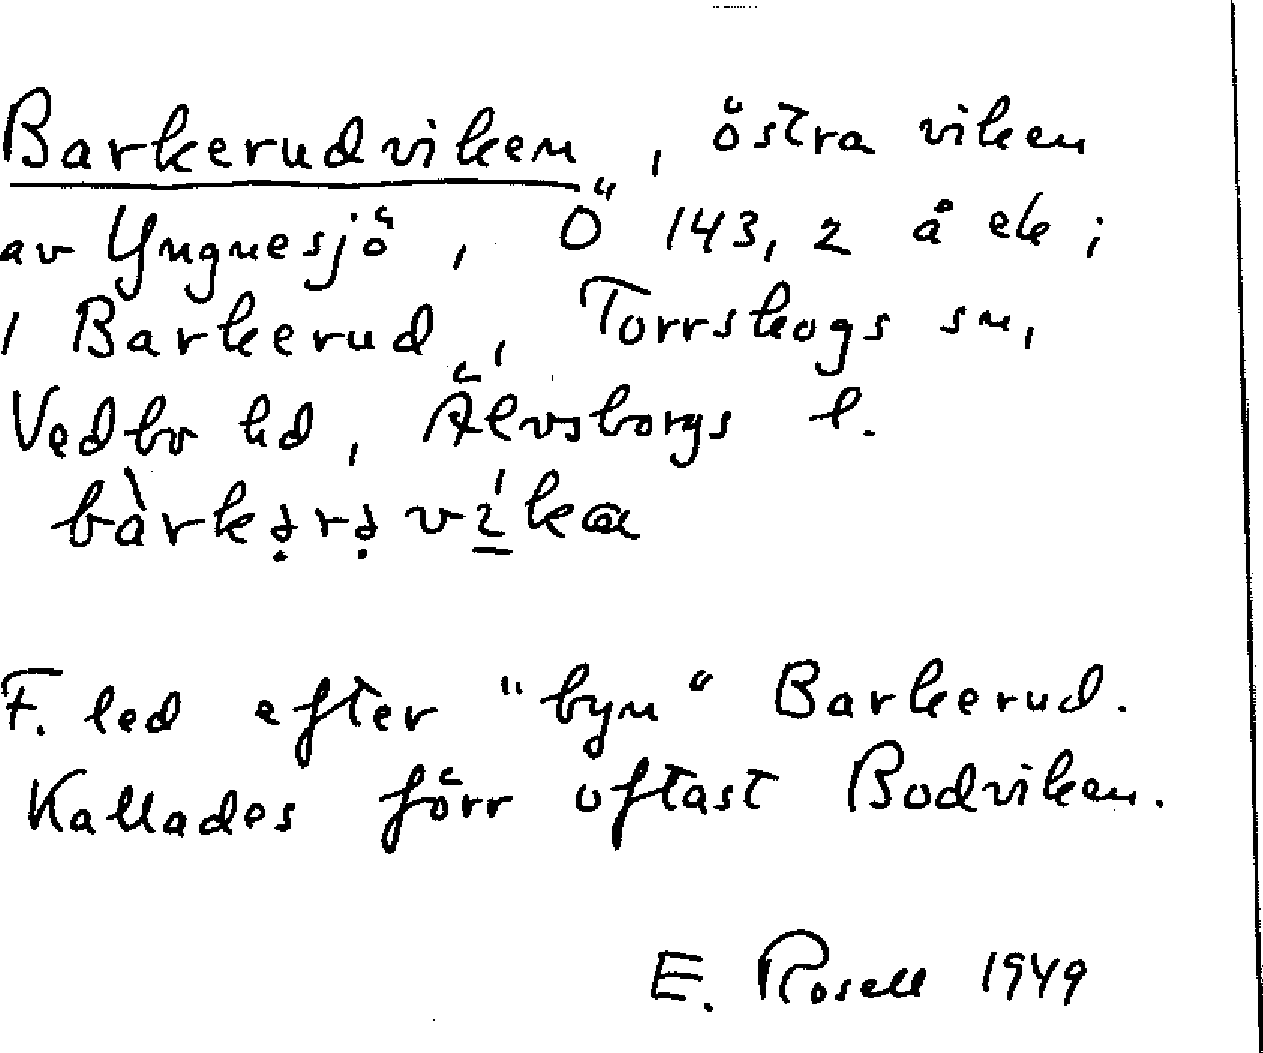 Barkerudviken, östra viken
av Yngnesjö, Ö 143, 2 å ek;
1 Barkerud, Torrskogs sn,
Vedbo hd, Älvsborgs l.
bàrkərə víka

F. led efter "byn" Barkerud.
Kallades förr oftast Bodviken.
E. Rosell 1949